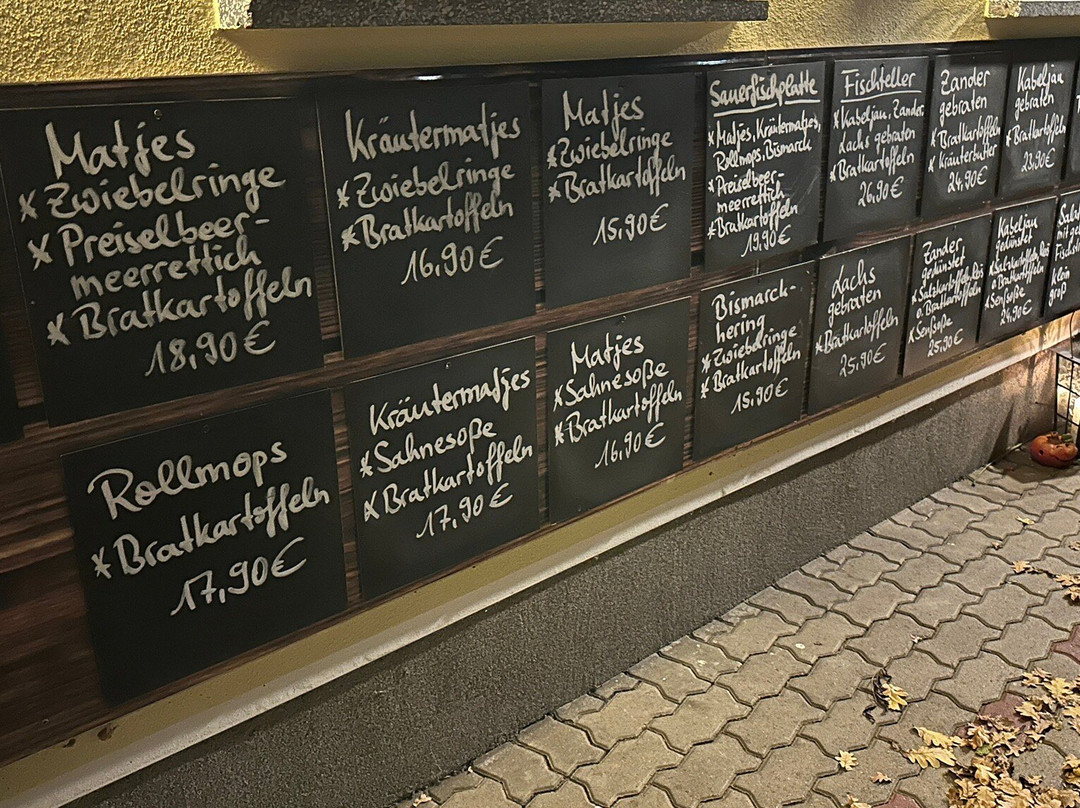 Matjes
* Zwiebelringe
* Preiselbeer-
meerrettich
* Bratkartoffeln
18,90€
Kräutermatjes
* Zwiebelringe
* Bratkartoffeln
16,90€
Matjes
* Zwiebelringe
* Bratkartoffeln
15,90€
Sauerfischplatte
* Matjes, Kräutermatjes,
Rollmops, Bismarck
* Preiselbeer-
meerrettich
* Bratkartoffeln
19,90€
Fischteller
* Kabeljau, Zander,
Lachs gebraten
* Bratkartoffeln
26,90€
Zander
gebraten
* Bratkartoffeln
* Kräuterbutter
24,90€
Kabeljau
gebraten
* Bratkartoffeln
23,90€
Rollmops
* Bratkartoffeln
17,90€
Kräutermatjes
* Sahnesoße
* Bratkartoffeln
17,90€
Matjes
* Sahnesoße
* Bratkartoffeln
16,90€
Bismarck-
hering
* Zwiebelringe
* Bratkartoffeln
15,90€
Lachs
gebraten
* Bratkartoffeln
25,90€
Zander
gedünstet
* Salzkartoffeln
o. Bratkartoffeln
* Senfsoße
25,90€
Kabeljau
gedünstet
* Salzkartoffeln
o. Bratkartoffeln
* Senfsoße
24,90€
klein
groß